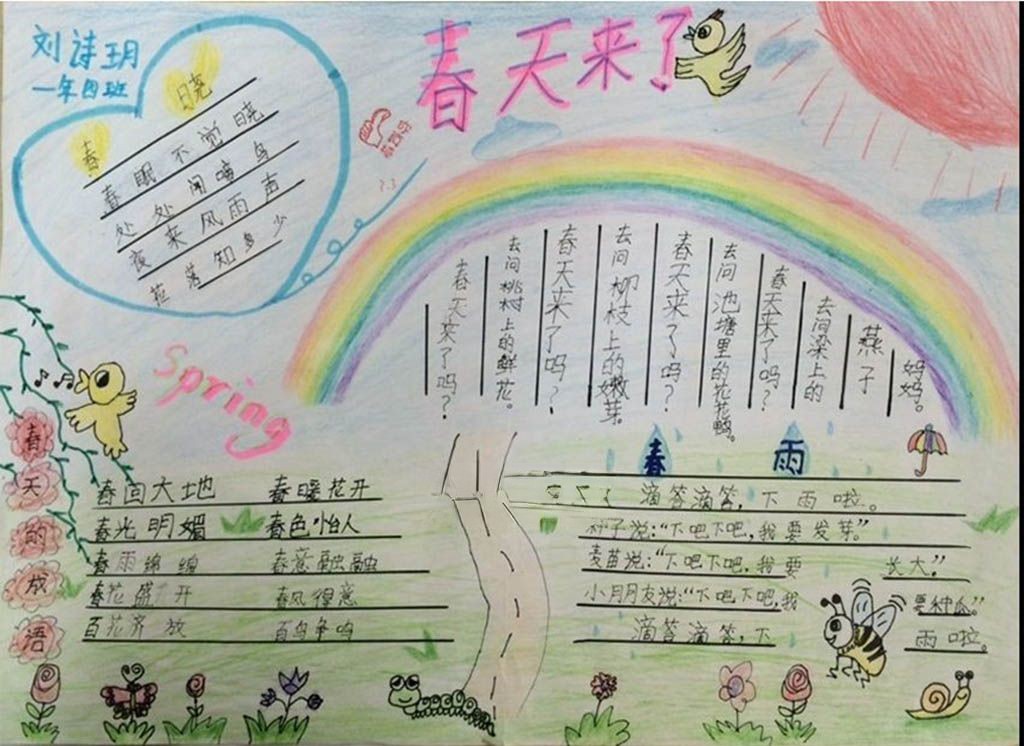 刘诗玥
一年四班
春天来了
春晓
春眠不觉晓
处处闻啼鸟
夜来风雨声
花落知多少
春天来了吗？
去问桃树上的鲜花。
春天来了吗？
去问柳枝上的嫩芽。
春天来了吗？
去问池塘里的花花鸭。
春天来了吗？
去问梁上的
燕子
妈妈。
Spring
春天的成语
春回大地 春暖花开
春光明媚 春色怡人
春雨绵绵 春意融融
春花盛开 春风得意
百花齐放 百鸟争鸣
春雨
滴答滴答，下雨啦。
种子说：“下吧下吧，我要发芽。”
麦苗说：“下吧下吧，我要长大。”
小朋友说：“下吧下吧，我要种瓜。”
滴答滴答，下雨啦。